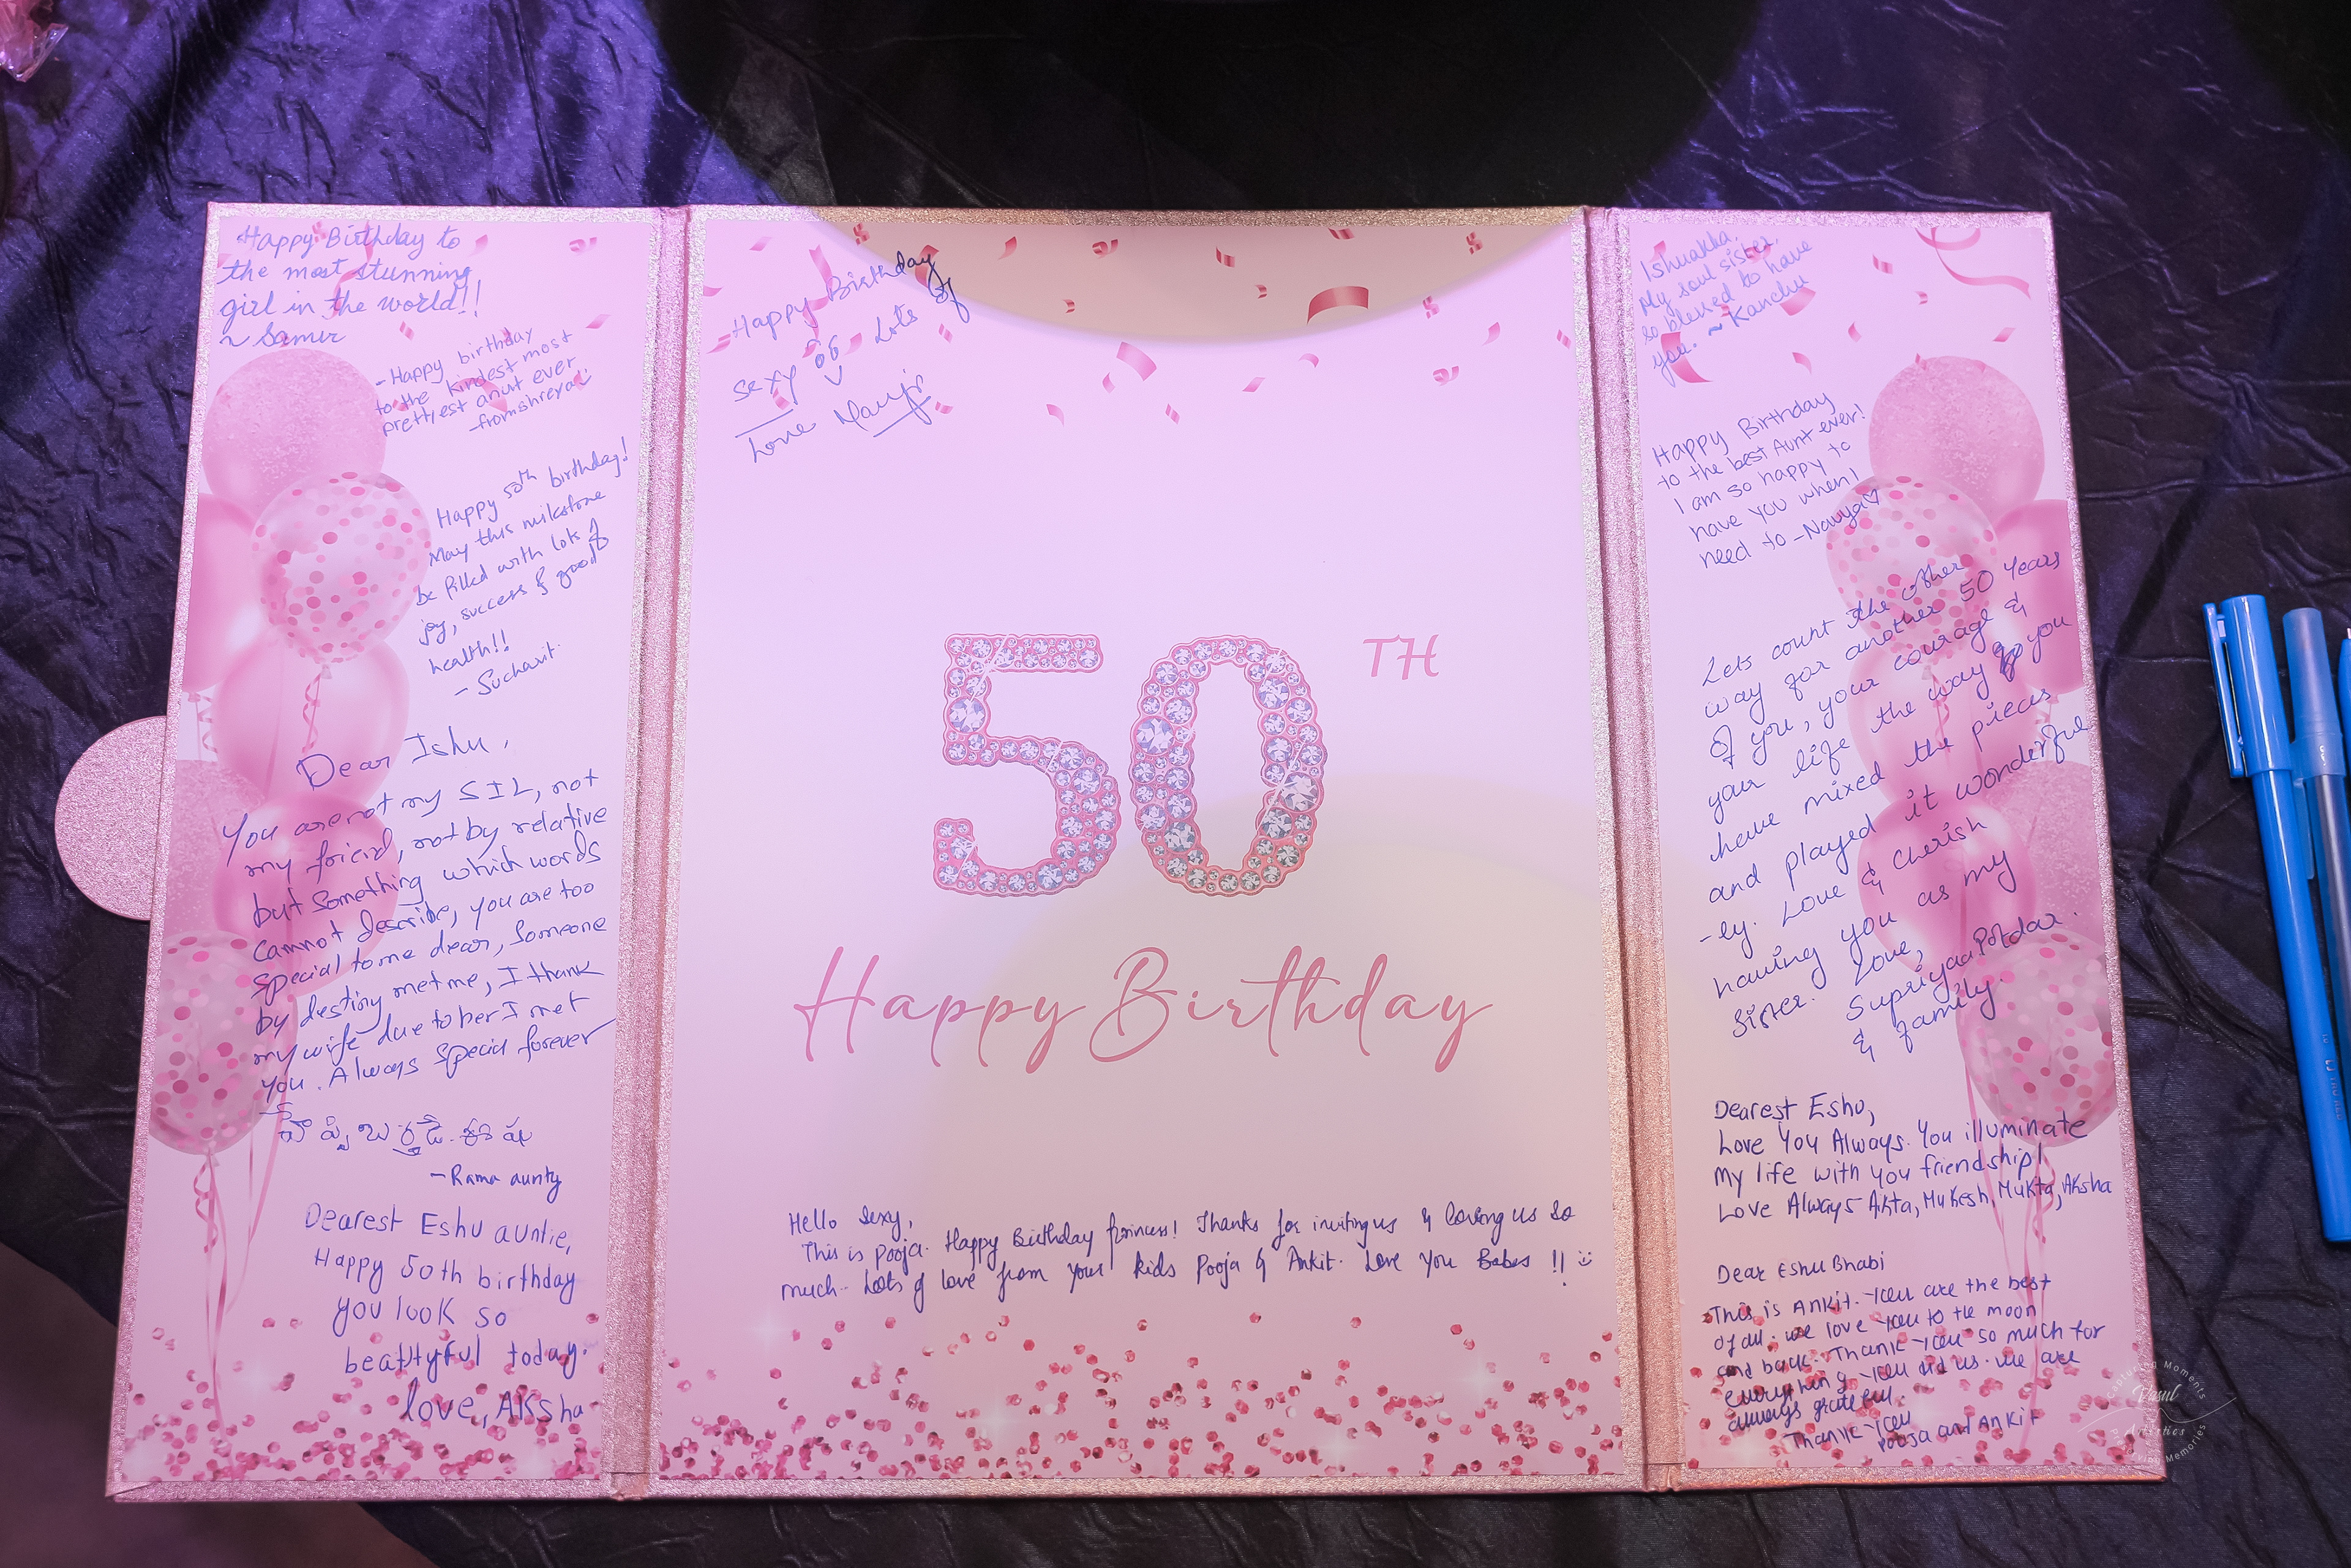 Happy Birthday to
the most stunning
girl in the world!!
~ Samir
- Happy birthday
to the kindest most
prettyest anut ever
-from shreya :)
Happy 50th birthday!
May this milestone
be filled with lots of
joy, success & good
health!!
- Sucharit
Dear Ishu,
You are not my SIL, not
my friend, not by relative
but something which words
cannot describe, you are too
special to me dear, someone
by destiny met me, I thank
my wife due to her I met
you. Always special forever
- Rama aunty
Dearest Eshu auntie,
Happy 50th birthday
you look so
beattyful today.
love, Aksha
Happy Birthday
sexy Lots of
Love
50TH
Happy Birthday
Hello Sexy,
This is Pooja. Happy Birthday princess! Thanks for inviting us & loving us so
much.. Lots of love from your kids Pooja & Ankit. Love you Babes !! :)
Ishuakka,
My soul sister,
so blessed to have
you. ~ Kanchu
Happy Birthday
to the best Aunt ever!
I am so happy to
have you when I
need to - Navya♡
Lets count the other
way for another 50 years
of you, your courage &
your life the way you
have mixed the pieces
and played it wonderful
-ly. Love & cherish
having you as my
sister. Love,
Supriyaa Potdar.
& family.
Dearest Eshu,
Love You Always. You illuminate
my life with you friendship!
Love Always Akta, Mukesh, Mukta, Aksha
Dear Eshu Bhabi
This is Ankit. You are the best
of all. we love you to the moon
and back. Thank you so much for
everything you did us. we are
always grateful.
Thank you
Pooja and Ankit
Capturing Moments
Rasul
Artistics